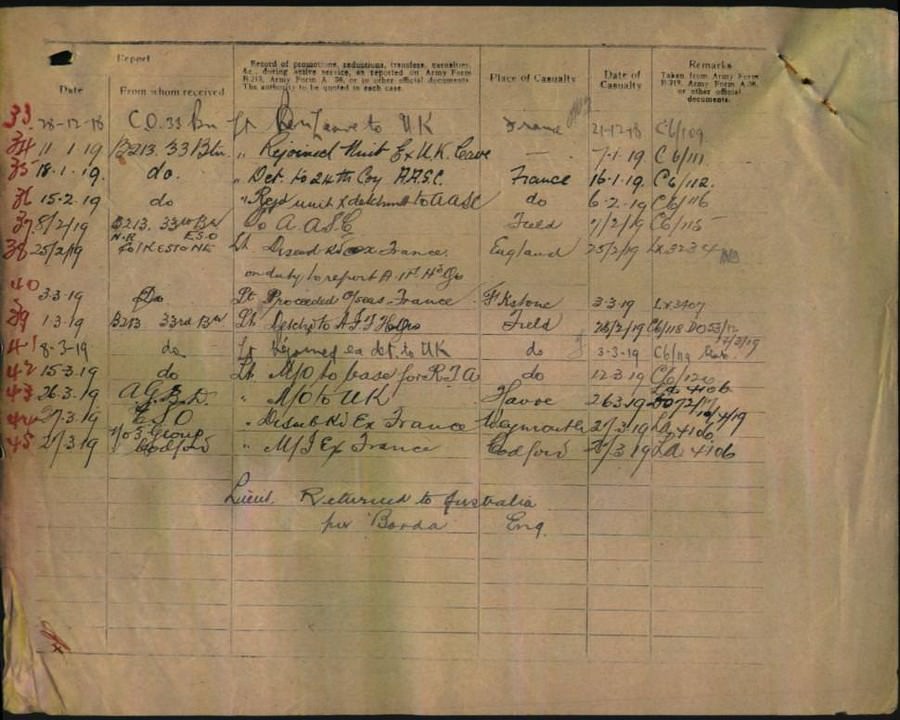 Report
Date
From whom received
Record of promotions, reductions, transfers, casualties,
&c., during active service, as reported on Army Form
B.213, Army Form A. 36, or in other official documents.
The authority to be quoted in each case.
Place of Casualty
Date of
Casualty
Remarks
Taken from Army Form
B.213, Army Form A.36,
or other official
documents.
33 28-12-18 C.O. 33 Bn Lt Leave to UK France 21-12-18 C6/109
34 11-1-19 B213. 33 Btn. " Rejoined Unit Ex U.K. Leave — 7-1-19 C6/111
35 18-1-19. do. " Det. to 24th Coy A.A.S.C. France 16-1-19. C6/112.
36 15-2-19 do "Rejd unit x detchmt to AASC do 6-2-19 C6/116
37 8/2/19 B213. 33rd Bn do A.A.S.C Field 7/2/19 C6/115
38 25/2/19 N.R. E.S.O FOLKESTONE Lt. Disembd ex France England 25/2/19 Lx3234
on duty to report A.I.F. HdQs
40 3.3.19 Do Lt Proceeded O/seas France F'kstone 3-3-19 Lx3407
39 1.3.19 B213 33rd Bn Lt. Detch to A.I.F HdQrs Field 25/2/19 C6/118 DO53/12
7/3/19
41 8-3-19 do Lt Rejoined ex det. to UK do 3-3-19 C6/119
42 15.3.19 do Lt. M/O to base for R.T.A do 12.3.19 C6/120
43 26.3.19 A.G.B.D. " M/O to UK Havre 26.3.19 La 4106
44 27.3.19 ESO " Disembkd Ex France Weymouth 27.3.19 La 4106
45 27.3.19 No 3 Group Codford " M/I Ex France Codford 28/3/19 La 4106
Lieut. Returned to Australia
per "Borda Eng.